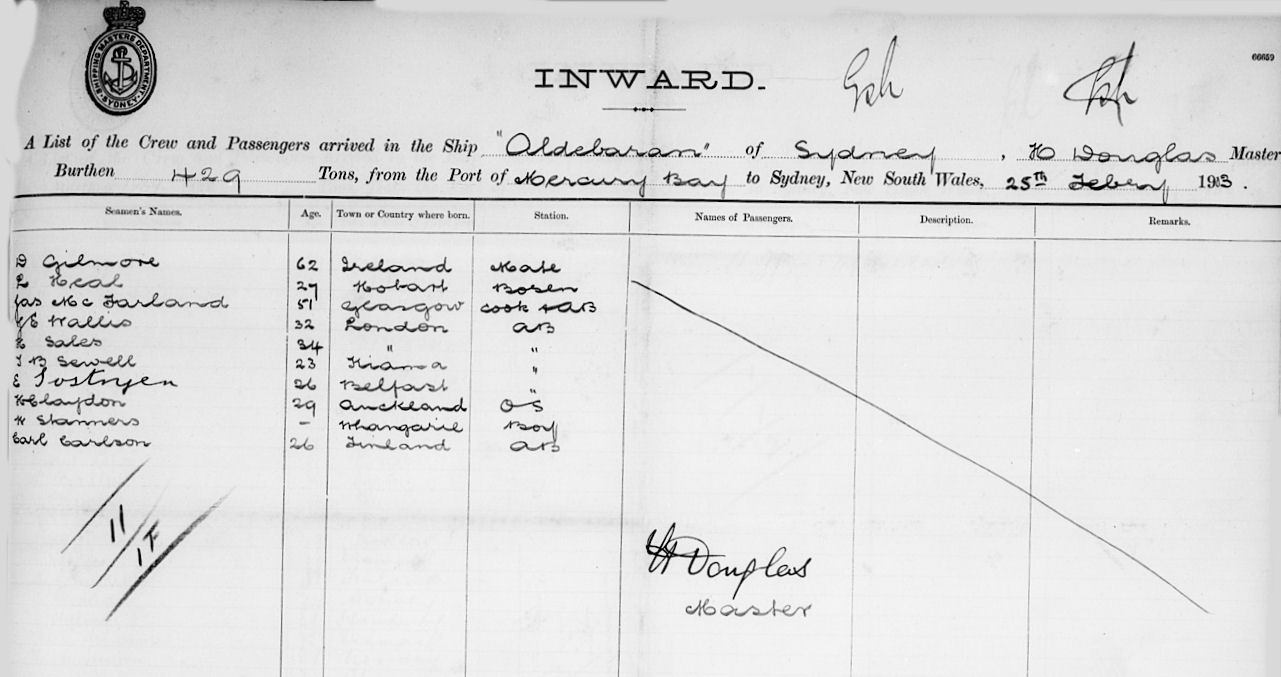 SHIPPING MASTERS DEPARTMENT SYDNEY
66659
INWARD.
A List of the Crew and Passengers arrived in the Ship "Aldebaran" of Sydney, H Douglas Master
Burthen 429 Tons, from the Port of Mercury Bay to Sydney, New South Wales, 25th Febry 1903.
Seamen's Names. Age. Town or Country where born. Station. Names of Passengers. Description. Remarks.
D Gilmore 62 Ireland Mate
Heal 29 Hobart Bosen
Jas McFarland 51 Glasgow cook & AB
Wallis 32 London AB
Sales 34 " "
T B Sewell 23 Kiama "
E 26 Belfast "
H Claydon 29 Auckland OS
H Stanners - Whangarie Boy
Carl Carlson 26 Finland AB
11
1F
H Douglas
Master